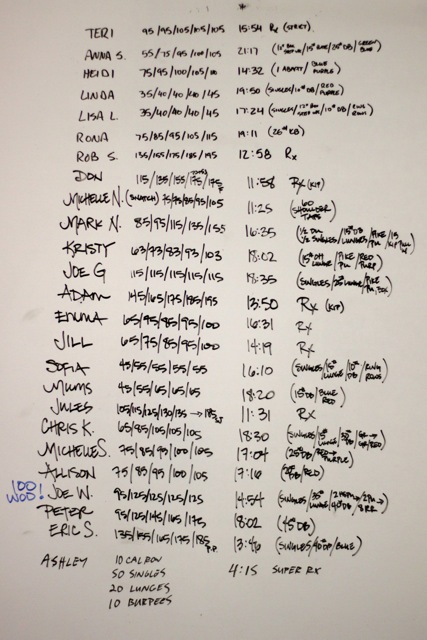 TERI 95/95/105/105/105 15:54 Rx (STRICT)
ANNA S. 55/75/95/100/105 21:17
HEIDI 75/95/100/105/110 14:32 (1 ABMAT/BLUE PURPLE)
LINDA 35/40/40/40/45 19:50 (SINGLES/10# DB/RED PURPLE)
LISA L. 35/40/40/40/45 17:24 (SINGLES/12" BOX STEP UP/10# DB/RING ROWS)
RONA 75/85/95/105/115 19:11 (26# KB)
ROB S. 135/155/175/185/195 12:58 Rx
DON 115/135/155/175/175 F 11:58 Rx (KIP)
MICHELLE N. (SNATCH) 75/75/85/95/105 11:25 (60 SHOULDER TAPS)
MARK N. 85/95/115/135/155 16:35
KRISTY 63/73/83/93/103 18:02
JOE G 115/115/115/115/115 18:35
ADAM 145/165/175/185/195 13:50 Rx (KIP)
EMMA 65/95/85/95/100 16:31 Rx
JILL 65/75/85/95/100 14:19 Rx
SOFIA 45/55/55/55/55 16:10 (SINGLES/15# LUNGE/10# DB/RING ROWS)
MUMS 45/55/65/65/65 18:20 (15# DB/BLUE RED)
JULES 105/115/125/130/135 → 185 11:31 Rx
CHRIS K. 65/95/105/105/105 18:30
MICHELLE S. 75/85/95/100/105 17:04 (25# DB/RED PURPLE)
ALLISON 75/85/95/100/105 17:16
100 WOD! JOE W. 95/125/125/125/125 14:54
PETER 95/125/145/165/175 18:02 (45# DB)
ERIC S. 135/155/165/175/185 P.P. 13:46 (SINGLES/40# DB/BLUE)
ASHLEY 10 CAL ROW 4:15 SUPER RX
50 SINGLES
20 LUNGES
10 BURPEES